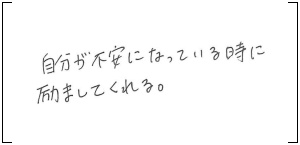 自分が不安になっている時に
励ましてくれる。